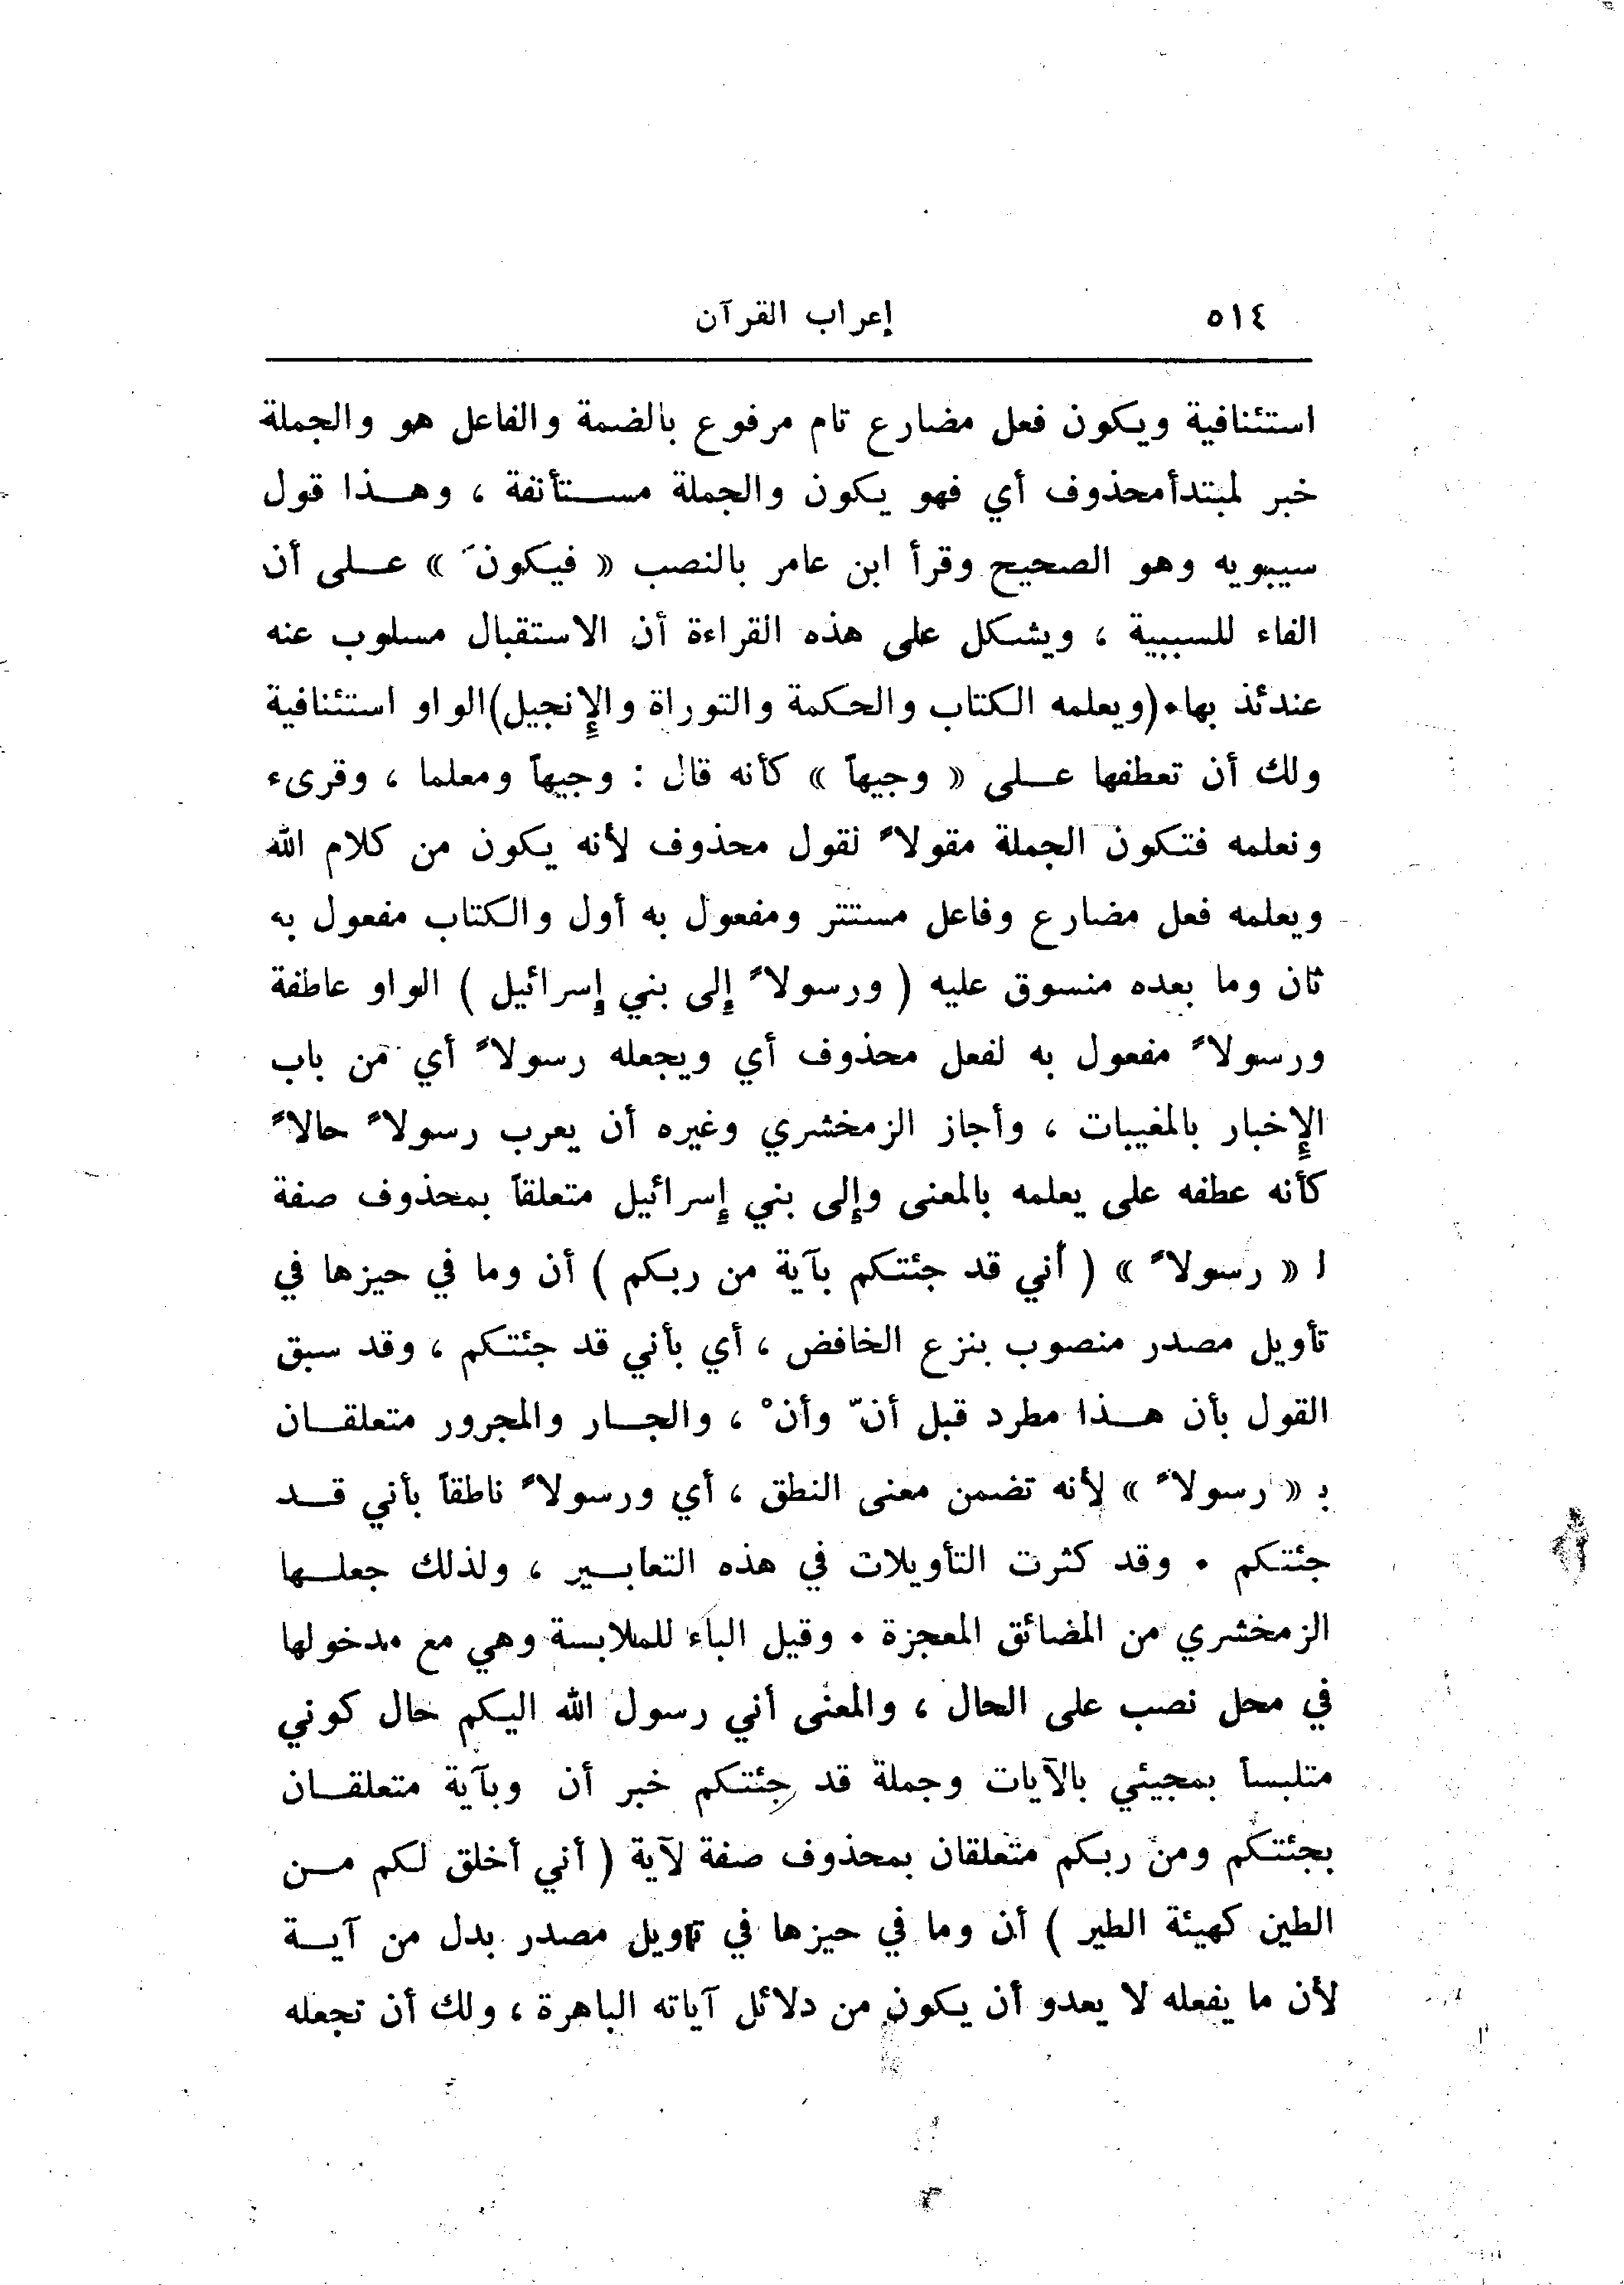 ٥١٤ إعراب القرآن
استئنافية ويكون فعل مضارع تام مرفوع بالضمة والفاعل هو والجملة
خبر لمبتدأمحذوف أي فهو يكون والجملة مستأنفة ، وهذا قول
سيبويه وهو الصحيح وقرأ ابن عامر بالنصب « فيكونَ » على أن
الفاء للسببية ، ويشكل على هذه القراءة أن الاستقبال مسلوب عنه
عندئذ بها٠(ويعلمه الكتاب والحكمة والتوراة والإنجيل)الواو استئنافية
ولك أن تعطفها على « وجيهاً » كأنه قال : وجيهاً ومعلما ، وقرىء
ونعلمه فتكون الجملة مقولاً نقول محذوف لأنه يكون من كلام الله
ويعلمه فعل مضارع وفاعل مستتر ومفعول به أول والكتاب مفعول به
ثان وما بعده منسوق عليه ( ورسولاً إلى بني إسرائيل ) الواو عاطفة
ورسولاً مفعول به لفعل محذوف أي ويجعله رسولاً أي من باب
الإخبار بالمغيبات ، وأجاز الزمخشري وغيره أن يعرب رسولاً حالاً
كأنه عطفه على يعلمه بالمعنى وإلى بني إسرائيل متعلقاً بمحذوف صفة
ا « رسولاً » ( أني قد جئتكم بآية من ربكم ) أن وما في حيزها في
تأويل مصدر منصوب بنزع الخافض ، أي بأني قد جئتكم ، وقد سبق
القول بأن هذا مطرد قبل أنّ وأنْ ، والجار والمجرور متعلقان
بـ « رسولاً » لأنه تضمن معنى النطق ، أي ورسولاً ناطقاً بأني قد
جئتكم ٠ وقد كثرت التأويلات في هذه التعابير ، ولذلك جعلها
الزمخشري من المضائق المعجزة ٠ وقيل الباء للملابسة وهي مع مدخولها
في محل نصب على الحال ، والمعنى أني رسول الله اليكم حال كوني
متلبسأ بمجيئي بالآيات وجملة قد جئتكم خبر أن وبآية متعلقان
بجئتكم ومن ربكم متعلقان بمحذوف صفة لآية ( أني أخلق لكم من
الطين كهيئة الطير ) أن وما في حيزها في تاويل مصدر بدل من آية
لأن ما يفعله لا يعدو أن يكون من دلائل آياته الباهرة ، ولك أن تجعله